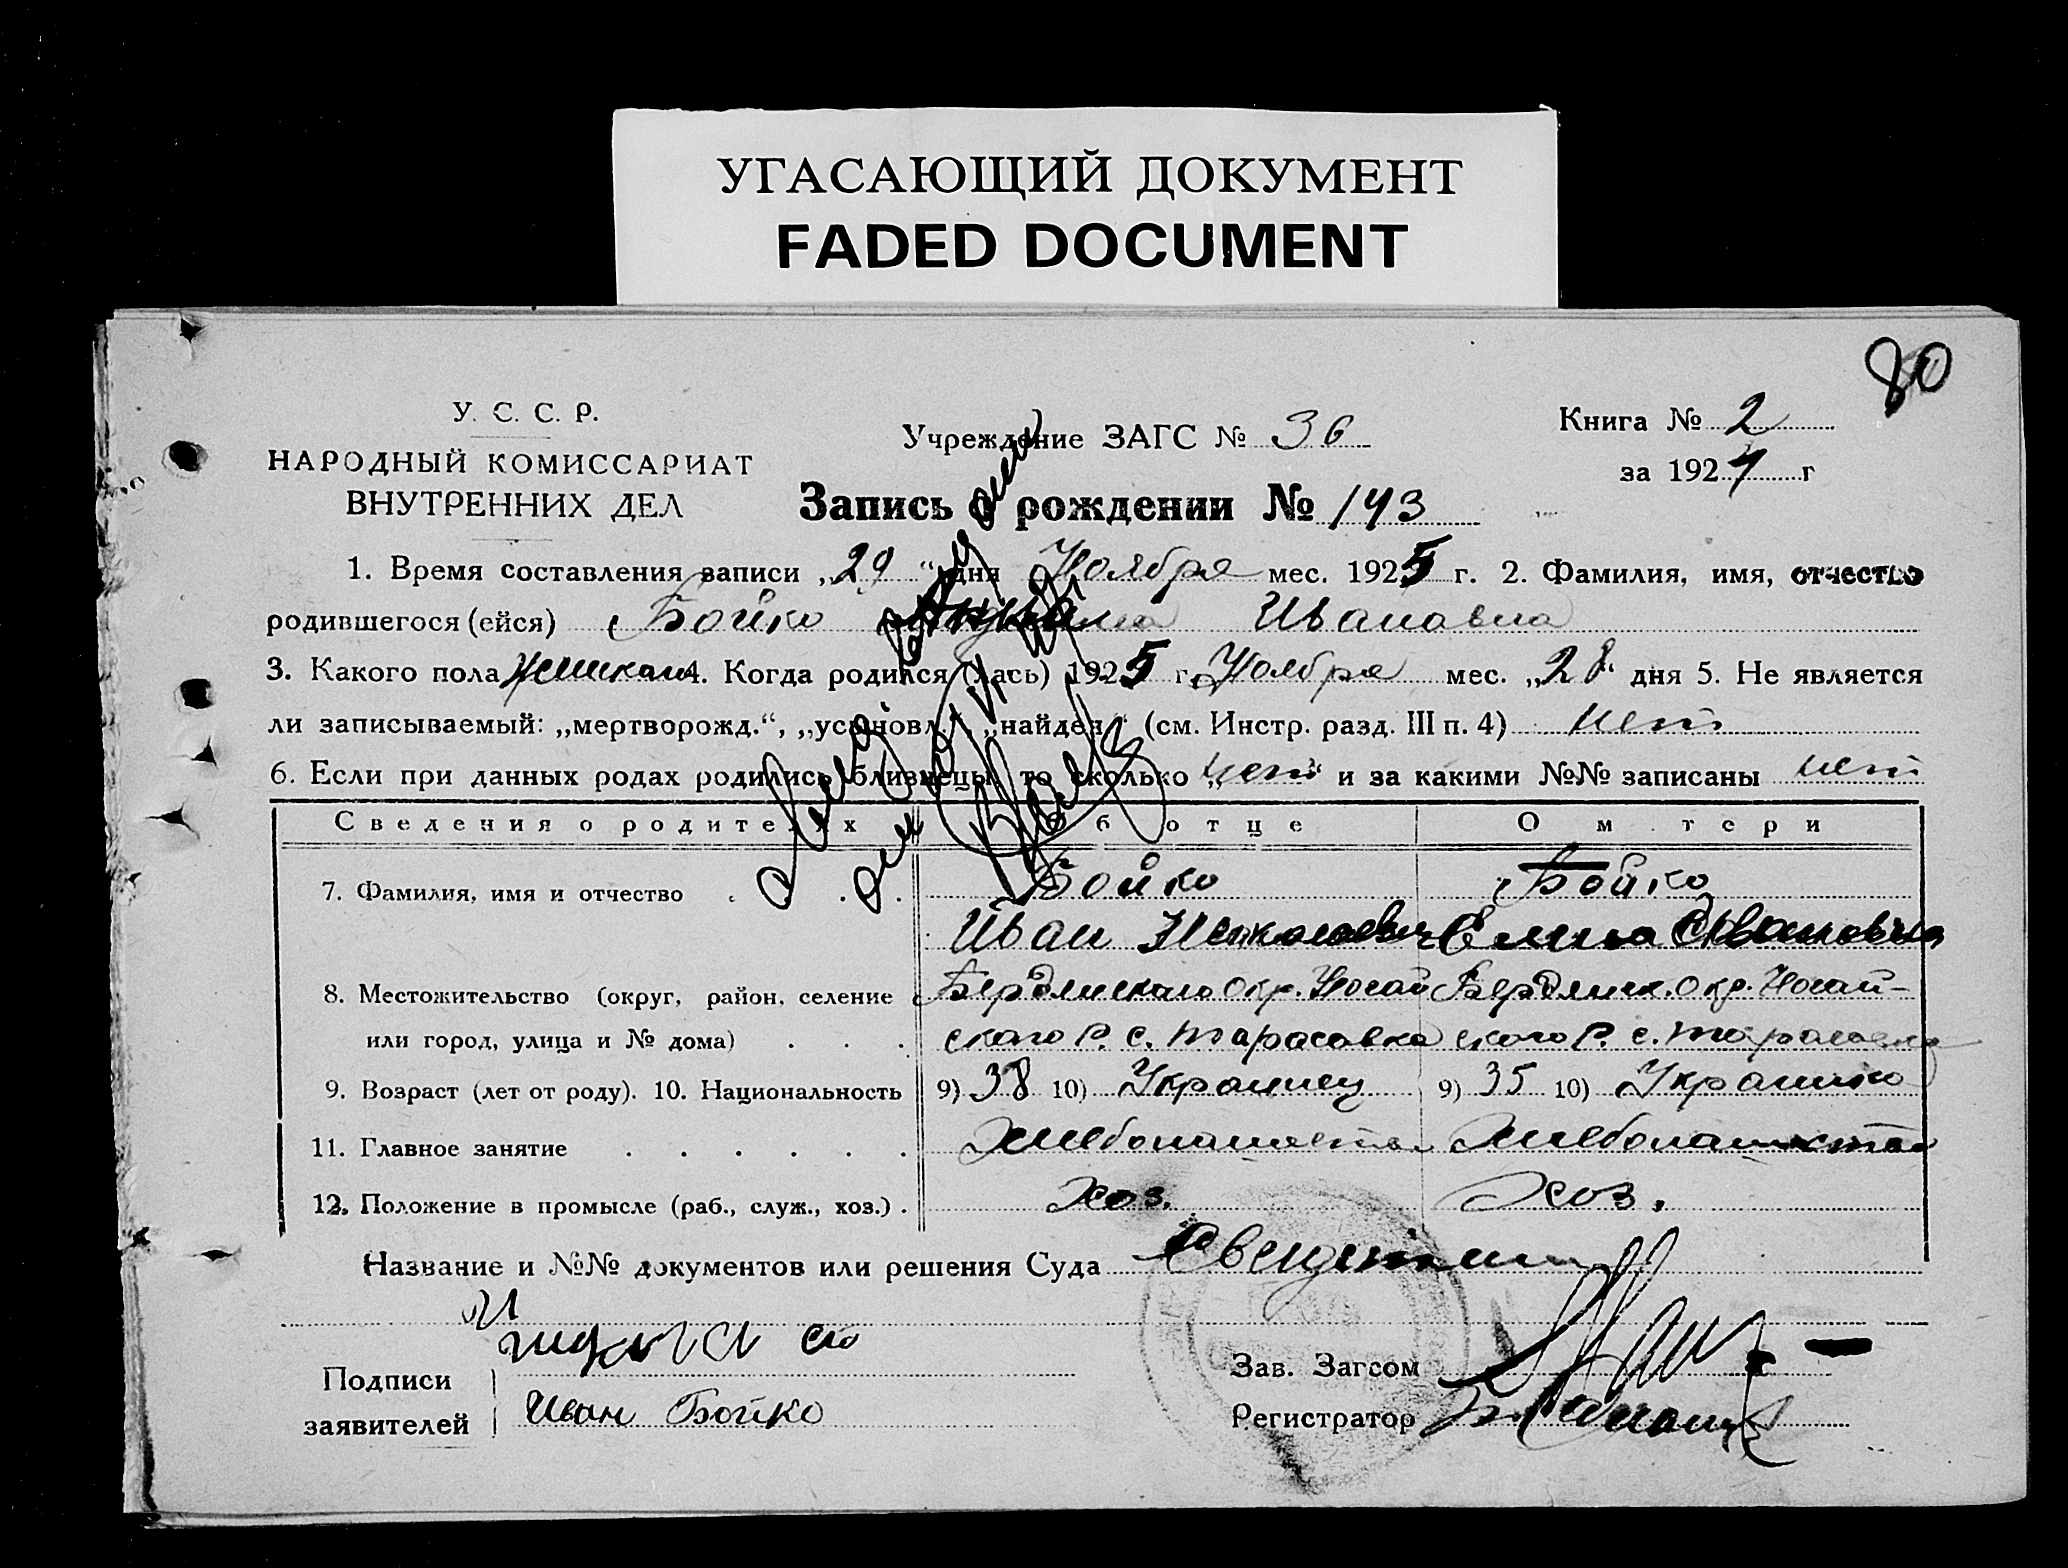 УГАСАЮЩИЙ ДОКУМЕНТ
FADED DOCUMENT
80
У. С. С. Р.
НАРОДНЫЙ КОМИССАРИАТ
ВНУТРЕННИХ ДЕЛ
Учреждение ЗАГС № 36
Книга № 2
за 1924 г
Запись о рождении № 143
1. Время составления записи „29“ дня Ноября мес. 1925 г. 2. Фамилия, имя, отчество
родившегося (ейся) Бойко Ивановна
3. Какого пола женская 4. Когда родился (лась) 1925 г. Ноября мес. „28“ дня 5. Не является
ли записываемый: „мертворожд.“, „установл.“, „найден“ (см. Инстр. разд. III п. 4) нет
6. Если при данных родах родились близнецы, то сколько „нет“ и за какими №№ записаны нет
Сведения о родителях Об отце О м тери
7. Фамилия, имя и отчество Бойко Бойко
Иван Николаевич Елена Ивановна
8. Местожительство (округ, район, селение Бердянского Окр. Ногай Бердянск. Окр. Ногай-
или город, улица и № дома) ского Р. с. Тарасовка ского Р. с. Тарасовка
9. Возраст (лет от роду). 10. Национальность 9) 38 10) Украинец 9) 35 10) Украинка
11. Главное занятие Хлебопашество Хлебопашество
12. Положение в промысле (раб., служ., хоз.) Хоз. Хоз.
Название и №№ документов или решения Суда
Подписи
заявителей
Иван Бойко
Зав. Загсом
Регистратор